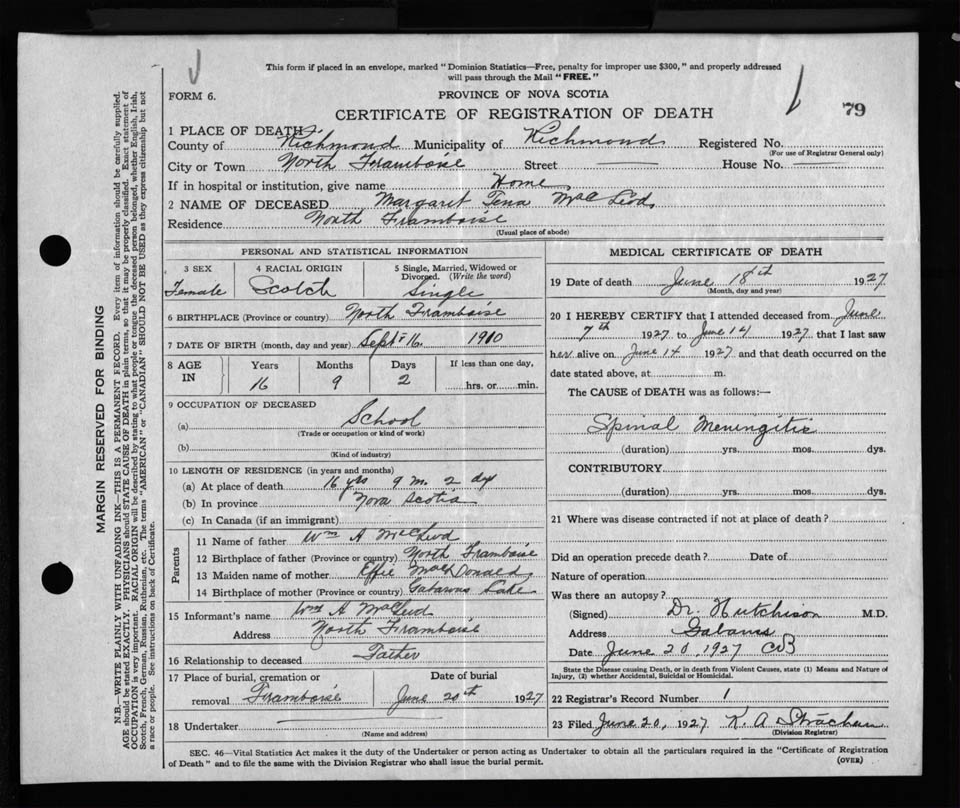 This form if placed in an envelope, marked "Dominion Statistics—Free, penalty for improper use $300," and properly addressed
will pass through the Mail "FREE."
FORM 6.
PROVINCE OF NOVA SCOTIA
79
CERTIFICATE OF REGISTRATION OF DEATH
1 PLACE OF DEATH
County of Richmond Municipality of Richmond Registered No.
(For use of Registrar General only)
City or Town North Framboise Street House No.
If in hospital or institution, give name Home
2 NAME OF DECEASED Margaret Tena MacLeod
Residence North Framboise
(Usual place of abode)
PERSONAL AND STATISTICAL INFORMATION
3 SEX
Female
4 RACIAL ORIGIN
Scotch
5 Single, Married, Widowed or
Divorced. (Write the word)
Single
6 BIRTHPLACE (Province or country) North Framboise
7 DATE OF BIRTH (month, day and year) Sept 16. 1910
8 AGE
IN
Years
16
Months
9
Days
2
If less than one day,
hrs. or min.
9 OCCUPATION OF DECEASED
(a) School
(Trade or occupation or kind of work)
(b)
(Kind of industry)
10 LENGTH OF RESIDENCE (in years and months)
(a) At place of death 16 yrs 9 m. 2 dys
(b) In province Nova Scotia
(c) In Canada (if an immigrant)
Parents
11 Name of father Wm A McLeod
12 Birthplace of father (Province or country) North Framboise
13 Maiden name of mother Effie MacDonald
14 Birthplace of mother (Province or country) Gabarus Lake
15 Informant's name Wm A MacLeod
Address North Framboise
16 Relationship to deceased Father
17 Place of burial, cremation or
removal Framboise
Date of burial
June 20th 1927
18 Undertaker
(Name and address)
MEDICAL CERTIFICATE OF DEATH
19 Date of death June 18th 1927
(Month, day and year)
20 I HEREBY CERTIFY that I attended deceased from June
7th 1927 to June 14 1927, that I last saw
her alive on June 14 1927 and that death occurred on the
date stated above, at m.
The CAUSE of DEATH was as follows:—
Spinal Meningitis
(duration) yrs. mos. dys.
CONTRIBUTORY
(duration) yrs. mos. dys.
21 Where was disease contracted if not at place of death?
Did an operation precede death? Date of
Nature of operation
Was there an autopsy?
(Signed) Dr. Hutchison M.D.
Address Gabarus
Date June 20, 1927 CB
State the Disease causing Death, or in death from Violent Causes, state (1) Means and Nature of
Injury, (2) whether Accidental, Suicidal or Homicidal.
22 Registrar's Record Number 1
23 Filed June 20, 1927 K. A Strachan
(Division Registrar)
SEC. 46—Vital Statistics Act makes it the duty of the Undertaker or person acting as Undertaker to obtain all the particulars required in the "Certificate of Registration
of Death" and to file the same with the Division Registrar who shall issue the burial permit.
(OVER)
MARGIN RESERVED FOR BINDING
N.B.—WRITE PLAINLY WITH UNFADING INK—THIS IS A PERMANENT RECORD. Every item of information should be carefully supplied.
AGE should be stated EXACTLY. PHYSICIANS should STATE CAUSE OF DEATH in plain terms, so that it may be properly classified. Exact statement of
OCCUPATION is very important. RACIAL ORIGIN will be described by stating to what people or tongue the deceased person belonged, whether English, Irish,
Scotch, French, German, Russian, Ruthenian, etc. The terms "AMERICAN" or "CANADIAN" SHOULD NOT BE USED as they express citizenship but not
a race or people. See instructions on back of Certificate.